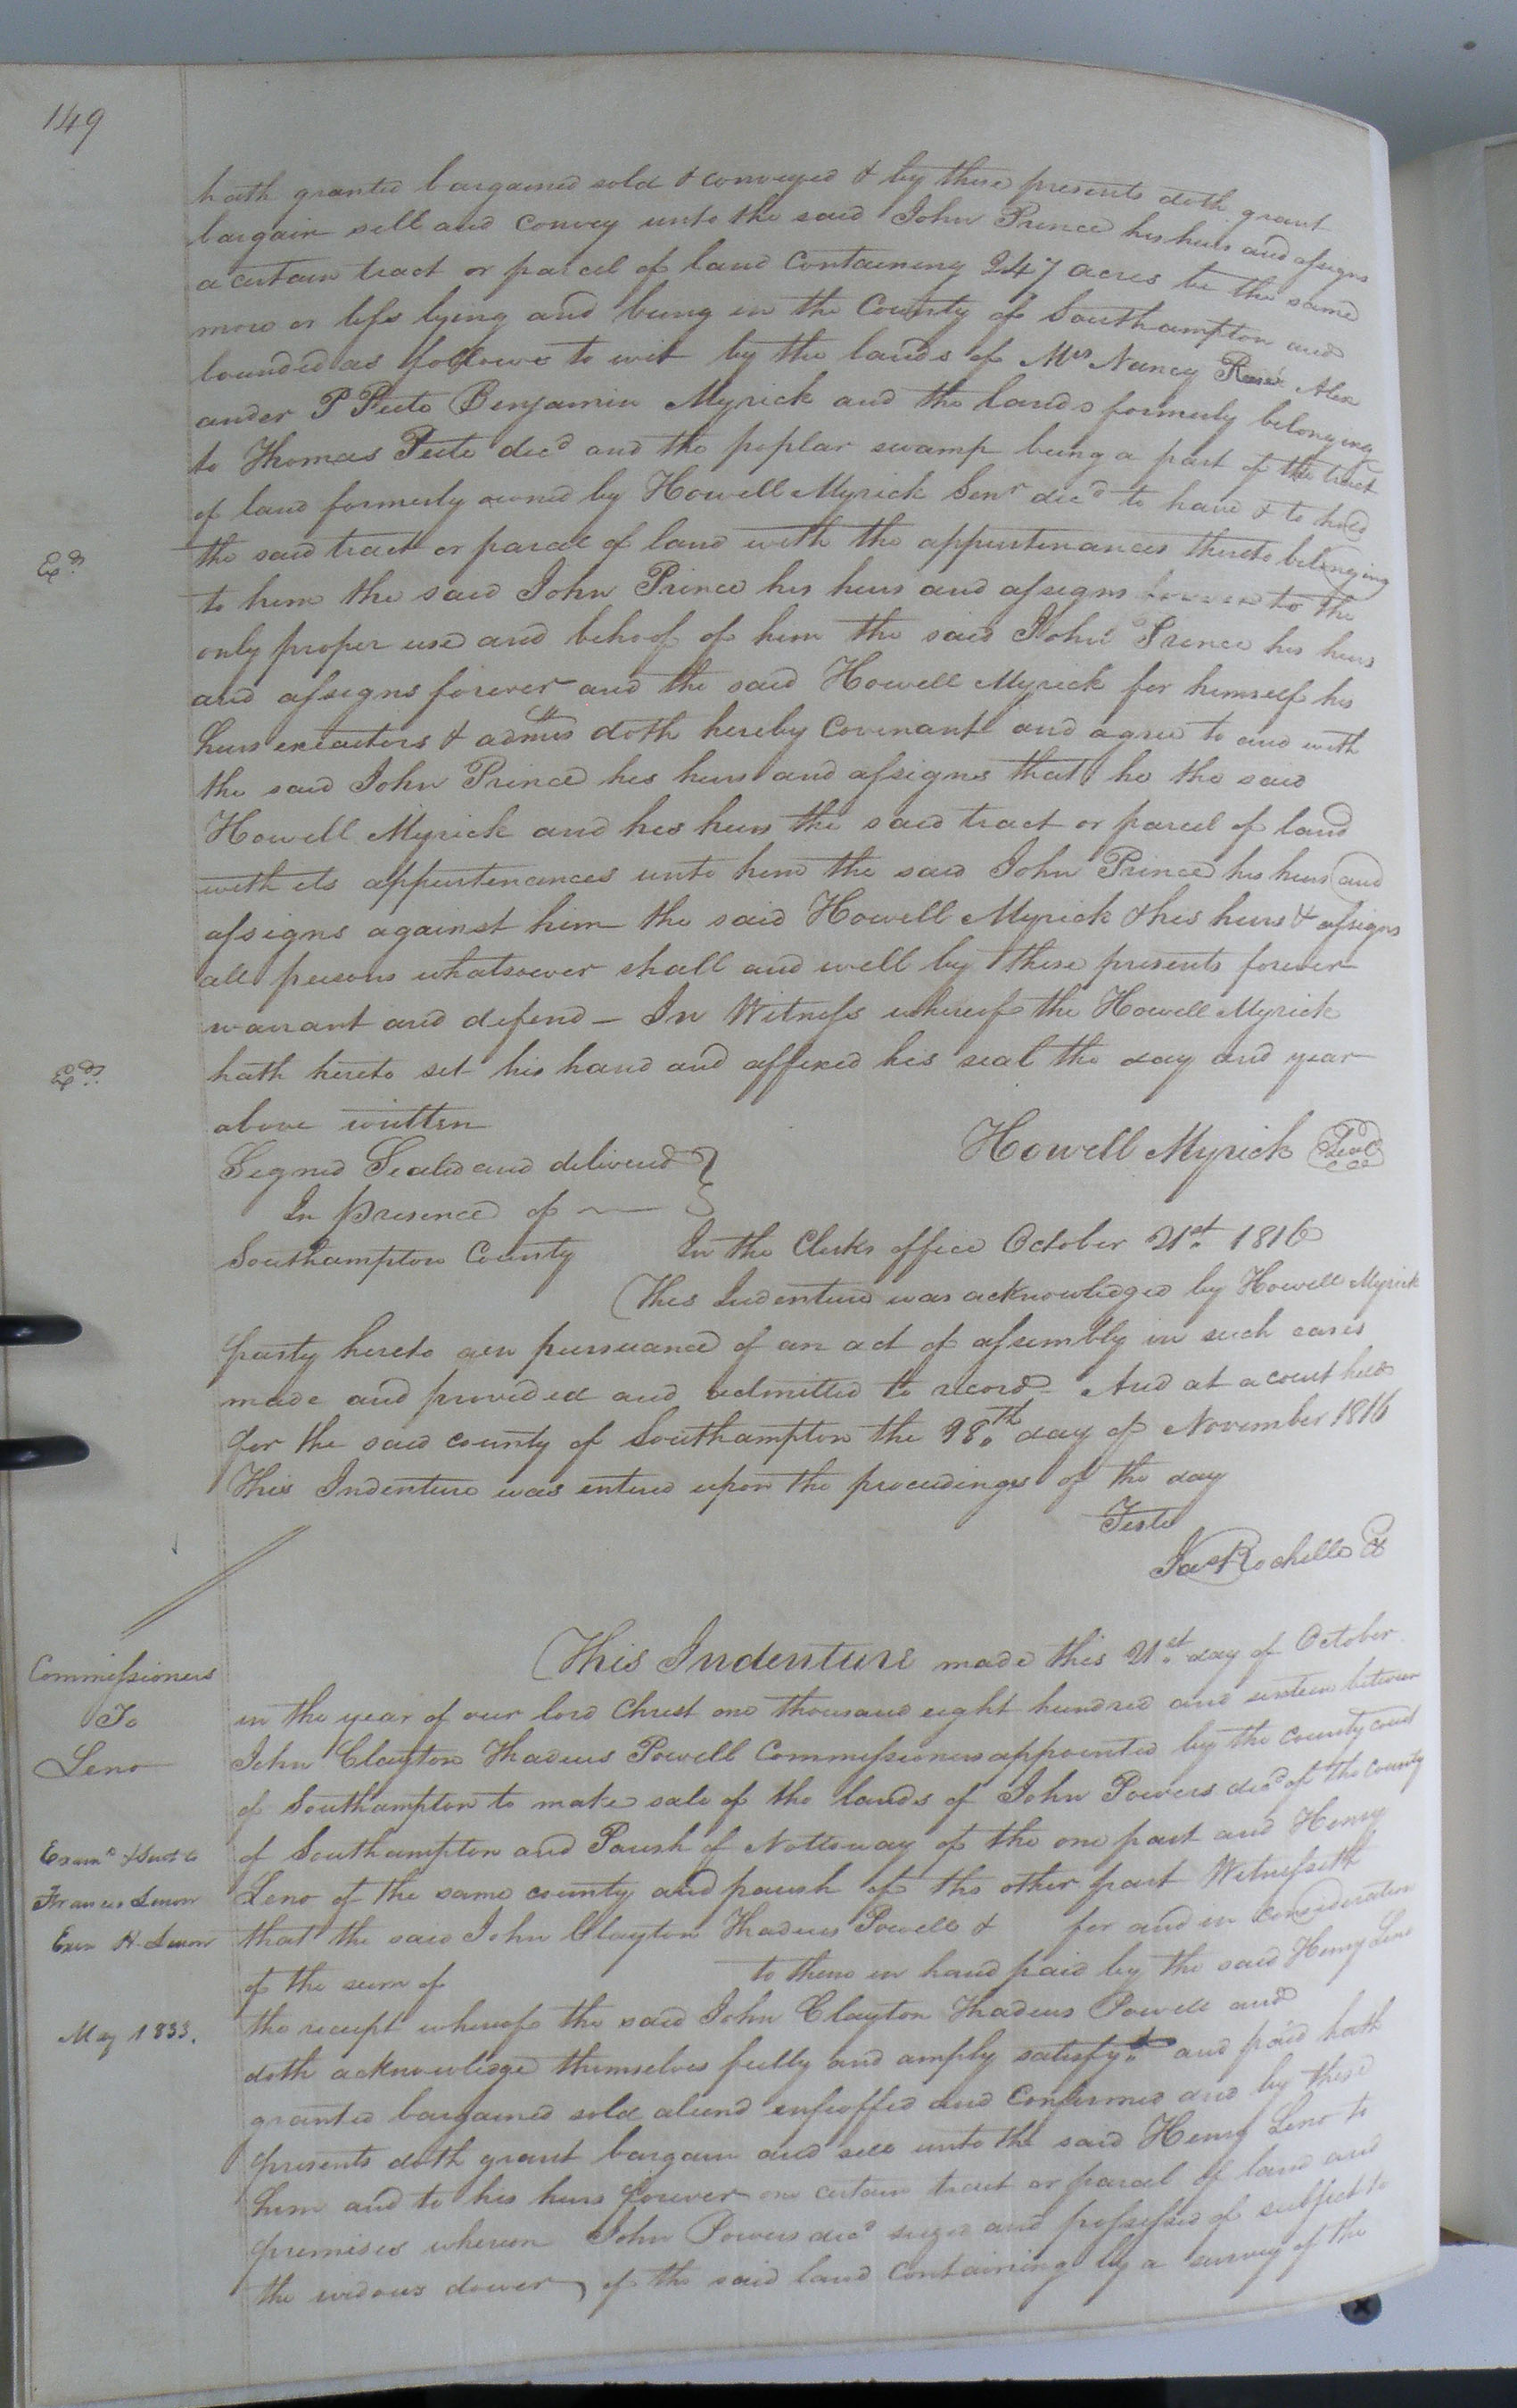 149
hath granted bargained sold & conveyed & by these presents doth grant
bargain sell and convey unto the said John Prince his heirs and assigns
a certain tract or parcel of land containing 247 acres be the same
more or less lying and being in the County of Southampton and
bounded as follows to wit by the lands of Mrs Nancy Alex
ander P Peete Benjamin Myrick and the lands formerly belonging
to Thomas Peete decd and the poplar swamp being a part of the tract
of land formerly owned by Howell Myrick Senr decd to have & to hold
the said tract or parcel of land with the appurtenances thereto belonging
to him the said John Prince his heirs and assigns to the
only proper use and behoof of him the said John Prince his heirs
and assigns forever and the said Howell Myrick for himself his
heirs executors & admrs doth hereby covenant and agree to and with
the said John Prince his heirs and assigns that he the said
Howell Myrick and his heirs the said tract or parcel of land
with its appurtenances unto him the said John Prince his heirs and
assigns against him the said Howell Myrick & his heirs & assigns
all persons whatsoever shall and will by these presents forever
warrant and defend – In Witness whereof the Howell Myrick
hath hereto set his hand and affixed his seal the day and year
above written
Howell Myrick Seal
Signed Sealed and delivered }
In presence of
Southampton County In the Clerks office October 21st 1816
This Indenture was acknowledged by Howell Myrick
party hereto in pursuance of an act of assembly in such cases
made and provided and admitted to record – And at a court held
for the said county of Southampton the 18th day of November 1816
This Indenture was entered upon the proceedings of the day
Teste
Jas Rochelle
Commissioners
To
Leno
Examd &
Francis Lenow
Exor H. Lenow
May 1833.
This Indenture made this 21st day of October
in the year of our lord Christ one thousand eight hundred and sixteen between
John Clayton Thadeus Powell Commissioners appointed by the county court
of Southampton to make sale of the lands of John Powers decd of the County
of Southampton and Parish of Nottoway of the one part and Henry
Leno of the same county and parish of the other part Witnesseth
that the said John Clayton Thadeus Powell & for and in consideration
of the sum of to them in hand paid by the said Henry Leno
the receipt whereof the said John Clayton Thadeus Powell and
doth acknowledge themselves fully and amply satisfyd and paid hath
granted bargained sold aliend enfeoffed and confirmed and by these
presents doth grant bargain and sell unto the said Henry Leno to
him and to his heirs forever one certain tract or parcel of land and
premises whereon John Powers decd siezed and possessed of subject to
the widows dower, of the said land containing by a survey of the